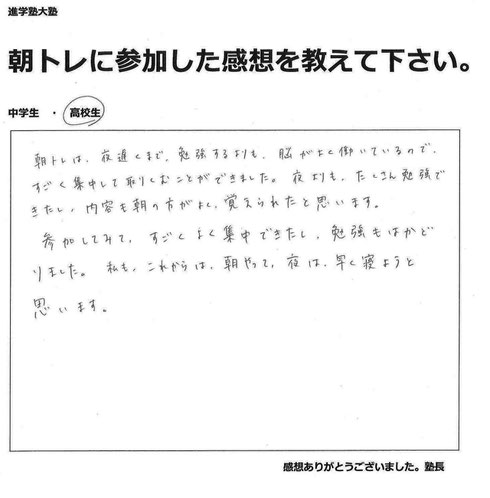 進学塾大塾
朝トレに参加した感想を教えて下さい。
中学生 ・ 高校生
朝トレは、夜遅くまで、勉強するよりも、脳がよく働いているので、
すごく集中して取りくむことができました。夜よりも、たくさん勉強で
きたし、内容も朝の方がよく、覚えられたと思います。
参加してみて、すごくよく集中できたし、勉強もはかど
りました。私も、これからは、朝やって、夜は、早く寝ようと
思います。
感想ありがとうございました。塾長